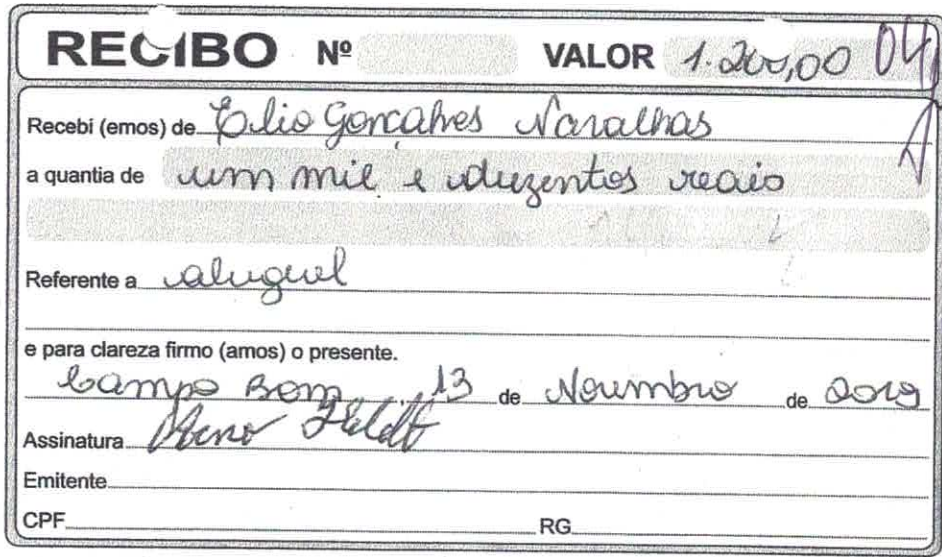 RECIBO Nº VALOR 1.200,00 04
Recebi (emos) de Elio Gonçalves Navalhas
a quantia de um mil e duzentos reais
Referente a aluguel
e para clareza firmo (amos) o presente.
Campo Bom, 13 de Novembro de 2019
Assinatura
Emitente
CPF RG